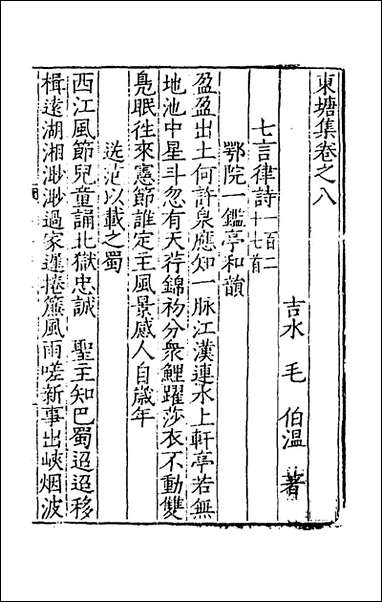 東塘集卷之八
吉水　毛　伯溫　著
七言律詩一百二十七首
鄂院一鑑亭和韻
盈盈出土何許泉應知一脉江漢連水上軒亭若無
地池中星斗忽有天荇錦初分衆鯉躍莎衣不動雙
鳧眠往來憲節誰定主風景感人自歲年
送范以載之蜀
西江風節兒童誦北獄忠誠　聖主知巴蜀迢迢移
楫遠湖湘渺渺過家遲捲簾風雨嗟新事出峽烟波